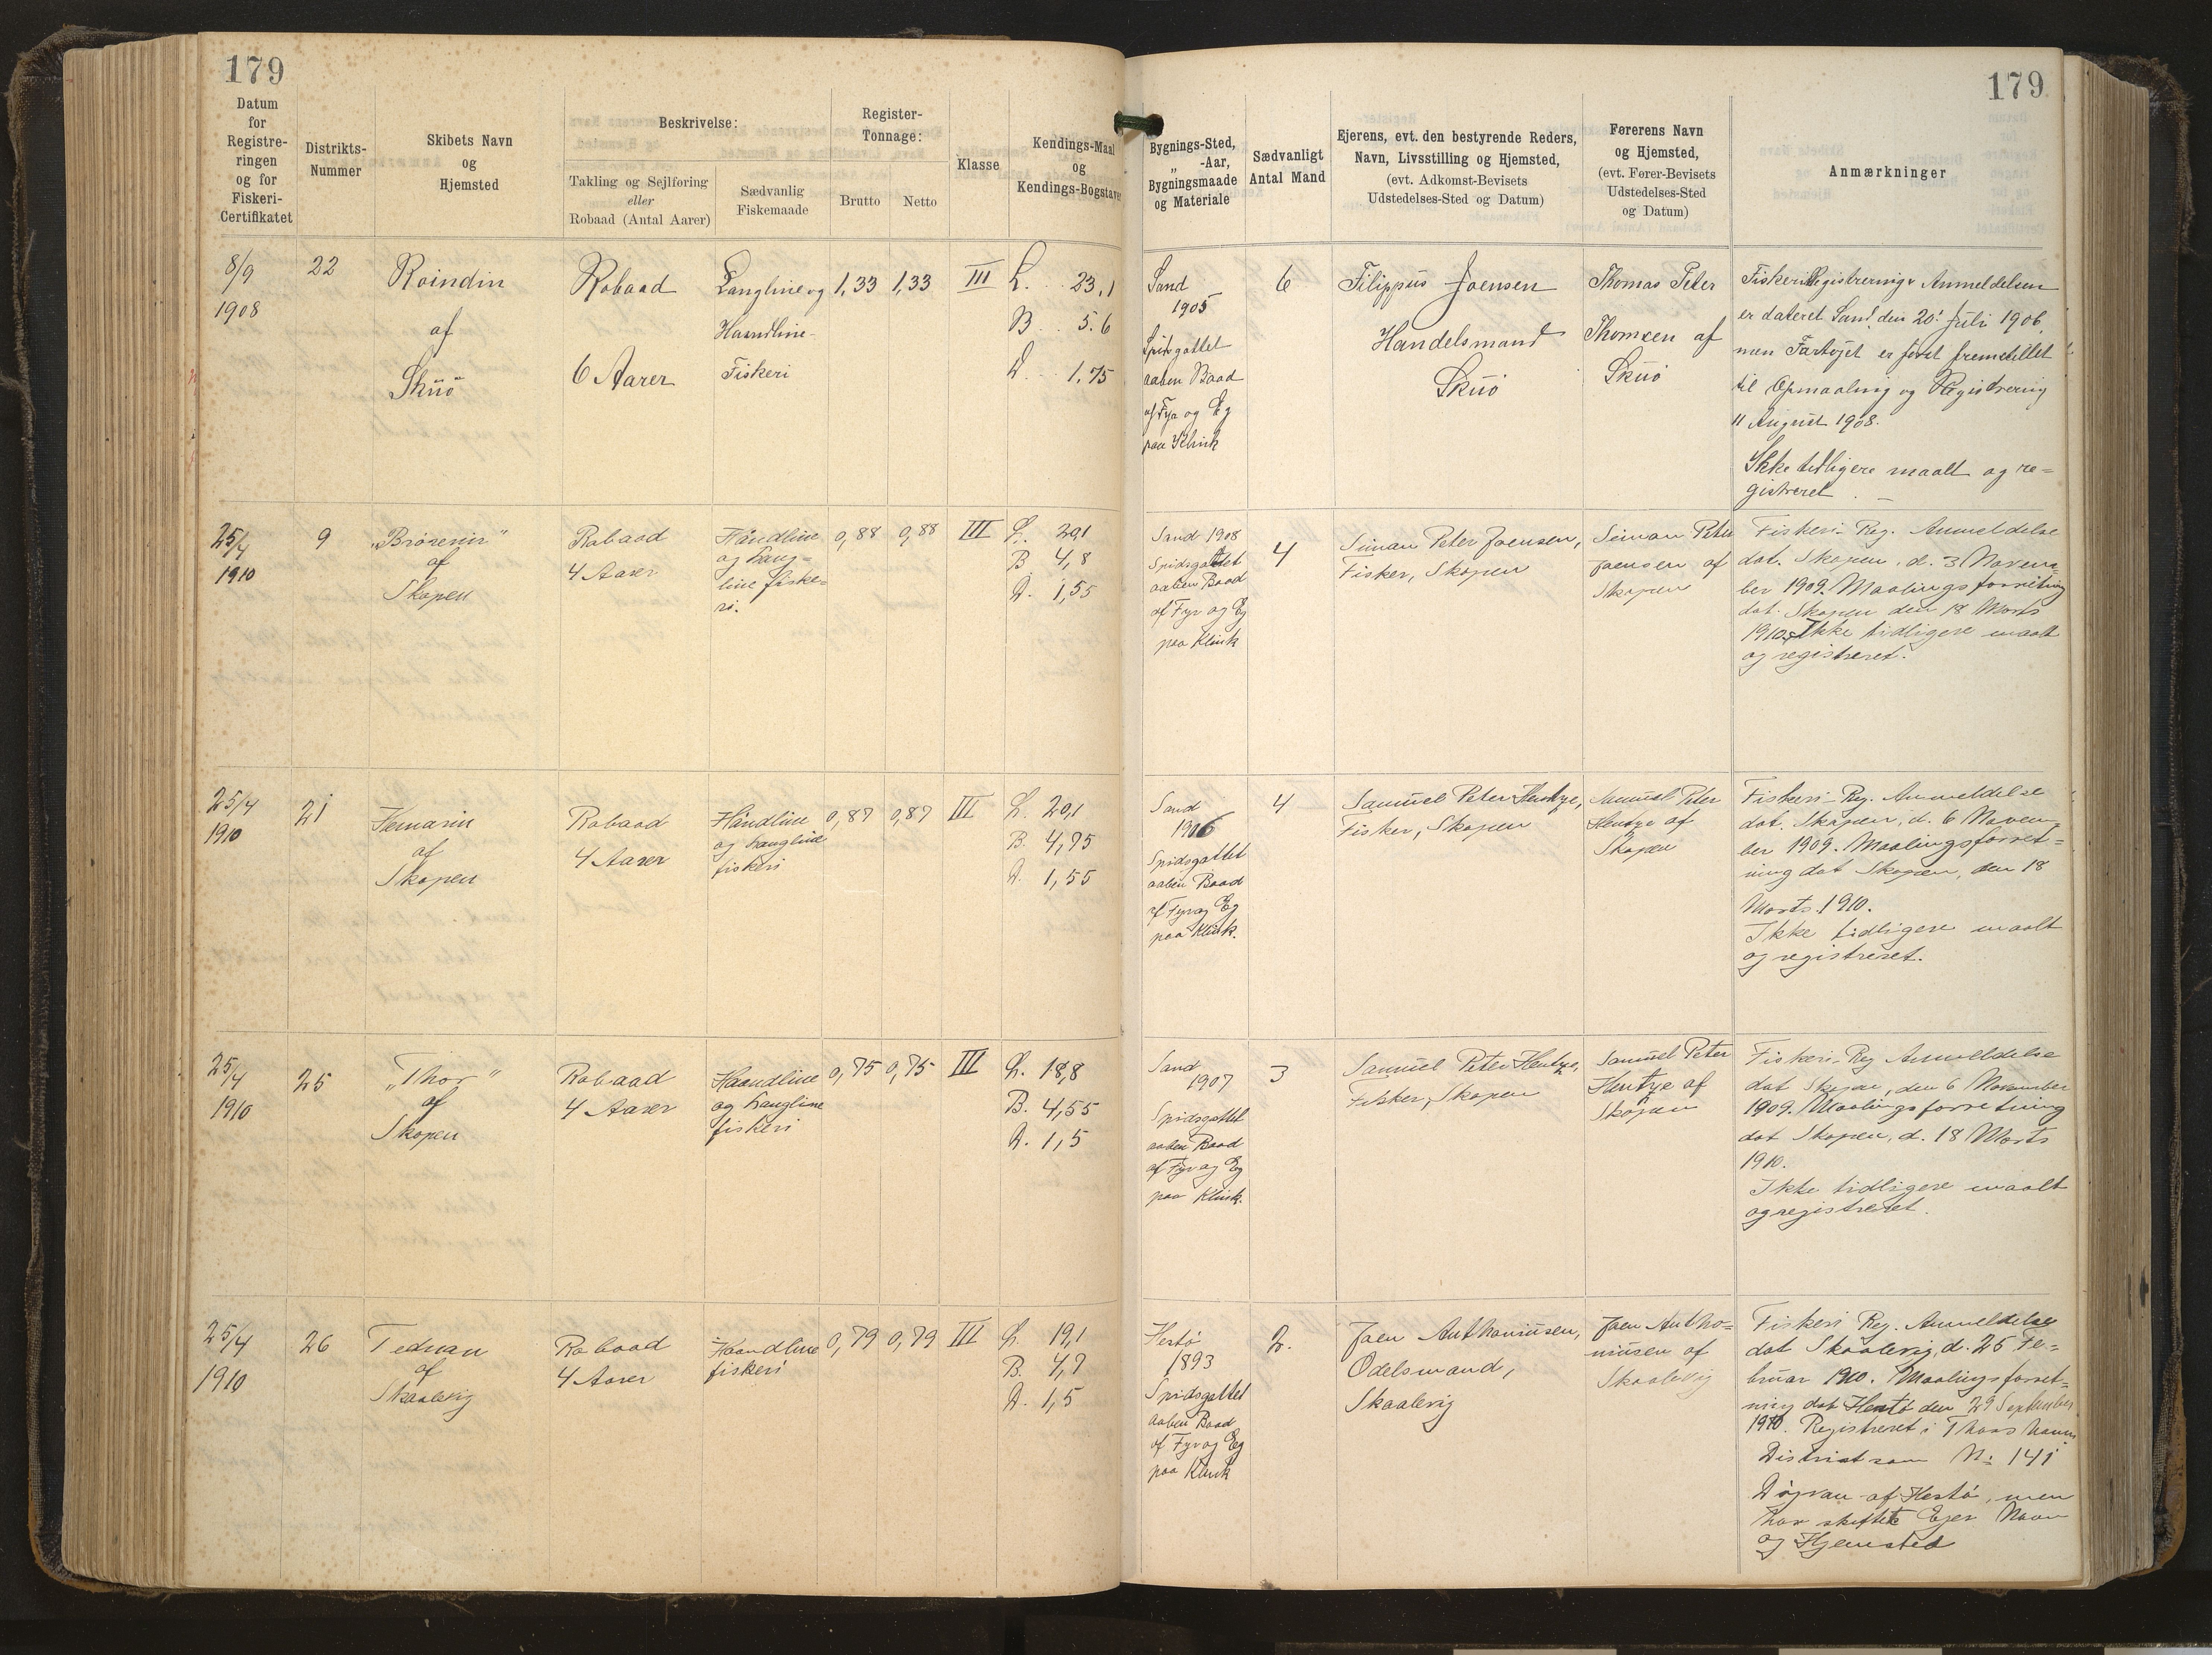 179
Datum
for
Registre-
ringen
og for
Fiskeri-
Certifikatet
Distrikts-
Nummer
Skibets Navn
og
Hjemsted
Beskrivelse:
Takling og Sejlføring
eller
Robaad (Antal Aarer)
Sædvanlig
Fiskemaade
Register-
Tonnage:
Brutto
Netto
Klasse
Kendings-Maal
og
Kendings-Bogstaver
179
Bygnings-Sted,
„ -Aar,
Bygningsmaade
og Materiale
Sædvanligt
Antal Mand
Ejerens, evt. den bestyrende Reders,
Navn, Livsstilling og Hjemsted,
(evt. Adkomst-Bevisets
Udstedelses-Sted og Datum)
Førerens Navn
og Hjemsted,
(evt. Fører-Bevisets
Udstedelses-Sted
og Datum)
Anmærkninger
8/9
1908
22
Roindin
af
Skuö
Robaad
6 Aarer
Langline og
Haandline-
Fiskeri
1,33
1,33
III
L. 23,1
B 5.6
D 1,75
Sand
1905
Spidsgattet
aaben Baad
af Fyr og Eg
paa Klink
6
Filippus Joensen
Handelsmand
Skuö
Thomas Peter
Thomsen af
Skuö
Fiskeri Registrerings Anmeldelsen
er dateret Sand den 20' Juli 1906,
men Fartøjet er først fremstillet
til Opmaaling og Registrering
11 August 1908.
Ikke tidligere maalt og re=
gistreret. —
25/4
1910
9
„Brösenin"
af
Skopen
Robaad
4 Aarer
Håndline
og Lang=
line fiske=
ri.
0,88
0,88
III
L. 20,1
B 4,8
D. 1,55
Sand 1908
Spidsgattet
aaben Baad
af Fyr og Eg
paa Klink
4
Simon Peter Joensen,
Fisker, Skopen
Simon Peter
Joensen af
Skopen
Fiskeri-Reg. Anmeldelse
dat. Skopen, d. 3 Novem=
ber 1909. Maalingsforretning
dat. Skopen den 18 Marts
1910. Ikke tidligere maalt
og registreret.
25/4
1910
21
af
Skopen
Robaad
4 Aarer
Håndline
og Langline
fiskeri
0,87
0,87
III
L. 20,1
B. 4,75
D. 1,55
Sand
1906
Spidsgattet
aaben Baad
af Fyr og Eg
paa Klink.
4
Samuel Peter Hentze,
Fisker, Skopen
Samuel Peter
Hentze af
Skopen
Fiskeri-Reg. Anmeldelse
dat. Skopen, d. 6 Novem=
ber 1909. Maalingsforret=
ning dat Skopen, den 18
Marts 1910.
Ikke tidligere maalt
og registreret.
25/4
1910
25
„Thor"
af
Skopen
Robaad
4 Aarer
Haandline
og Langline
fiskeri
0,75
0,75
III
L. 18,8
B. 4,55
D. 1,5
Sand
1907
Spidsgattet
aaben Baad
af Fyr og Eg
paa Klink.
3
Samuel Peter Hentze,
Fisker, Skopen
Samuel Peter
Hentze af
Skopen
Fiskeri-Reg Anmeldelse
dat Skopen, den 6 November
1909. Maalingsforretning
dat Skopen, d. 18 Marts
1910.
Ikke tidligere maalt
og registreret.
25/4
1910
26
Tednan
af
Skaalevig
Robaad
4 Aarer
Haandline
fiskeri
0,79
0,79
III
L. 19,1
B. 4,7
D. 1,5
Hestö
1893
Spidsgattet
aaben Baad
af Fyr og Eg
paa Klink
2.
Joen Anthoniusen,
Odelsmand,
Skaalevig
Joen Antho=
niusen af
Skaalevig
Fiskeri Reg. Anmeldelse
dat Skaalevig, d. 25 Fe=
bruar 1910. Maalingsforret=
ning dat Hestö den 29 September
1910. Registreret i Thorshavns
District som No 141
af Hestö, men
har skiftet Ejer Navn
og Hjemsted